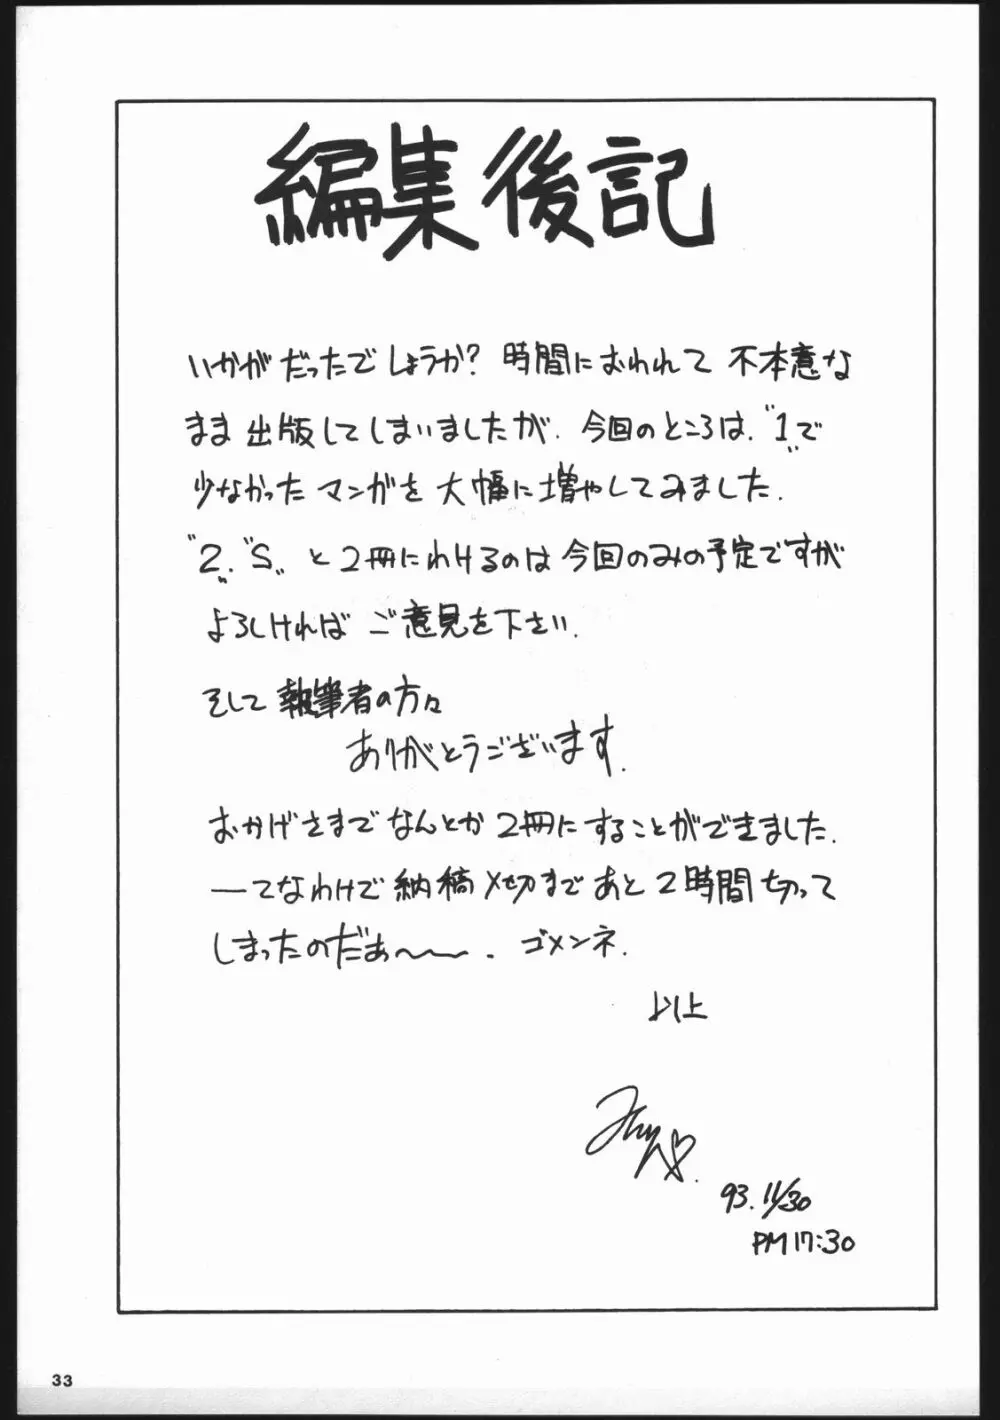 編集後記
いかがだったでしょうか?時間におわれて不本意な
まま出版してしまいましたが.今回のところは、"1"で
少なかったマンガを大幅に増やしてみました.
"2". "S" と2冊にわけるのは今回のみの予定ですが
よろしければご意見を下さい.
そして執筆者の方々
ありがとうございます.
おかげさまでなんとか2冊にすることができました.
ーてなわけで納稿〆切まであと2時間切って
しまったのだぁ〜〜.ゴメンネ.
以上
93.11/30
PM17:30
33